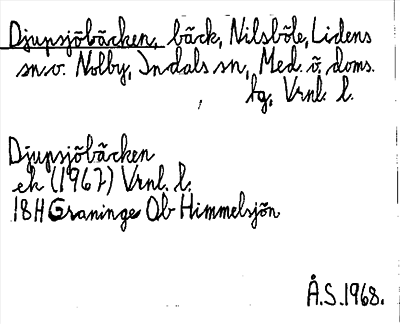 Djupsjöbäcken, bäck, Nilsböle, Lidens
sn. o. Nolby, Indals sn, Med. ö. doms.
lg, Vrnl. l.
Djupsjöbäcken
ek (1967) Vrnl. l.
18H Graninge Ob Himmelsjön
Å.S. 1968.